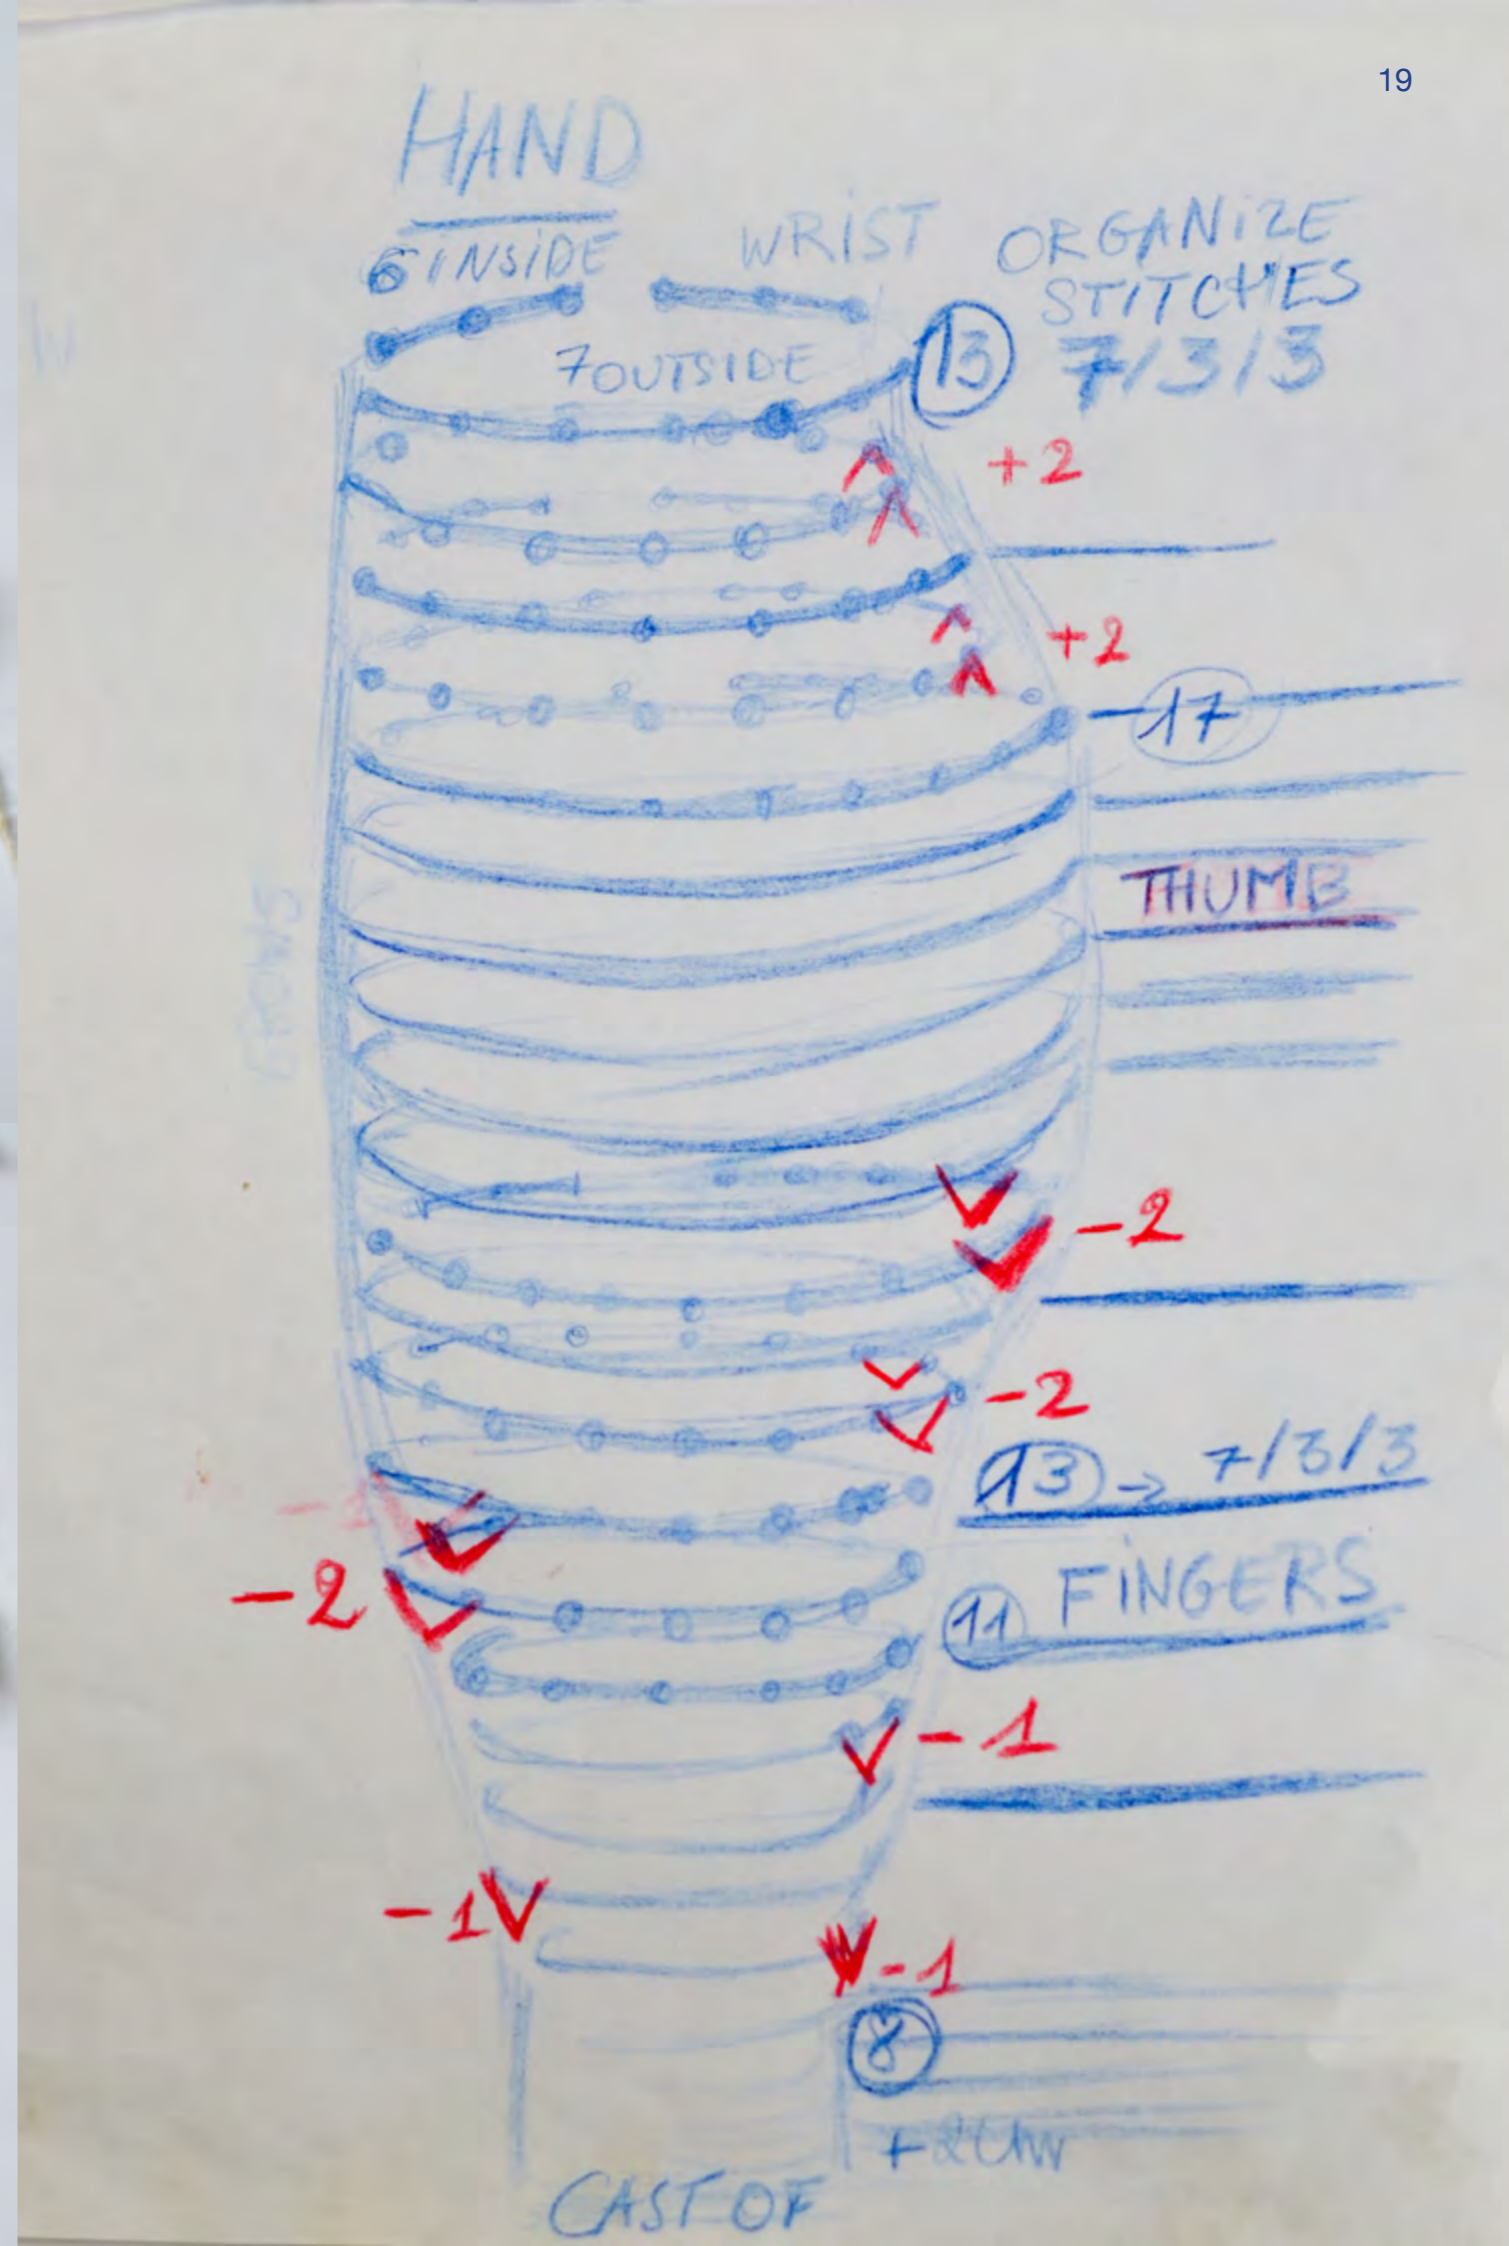 19
HAND
6 INSIDE
WRIST
ORGANIZE
STITCHES
7 OUTSIDE
13
7/3/3
+2
+2
17
THUMB
-2
-2
13 → 7/3/3
-1
-2
11 FINGERS
-1
-1
-1
8
CAST OF